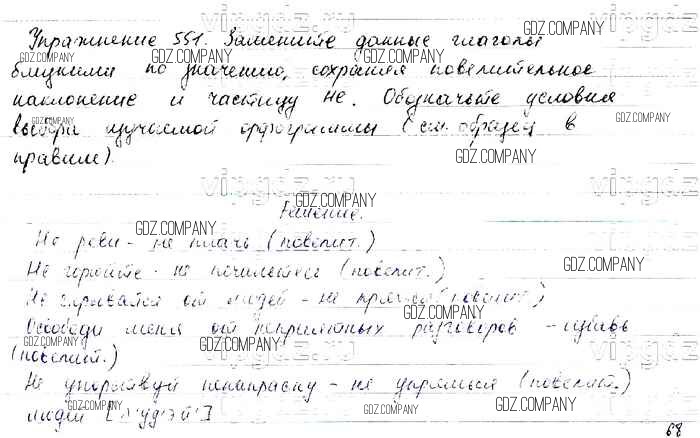 Упражнение 551. Замените данные глаголы
близкими по значению, сохраняя повелительное
наклонение и частицу не. Обозначьте условия
выбора изучаемой орфограммы (см. образец в
правиле).
Решение.
Не реви - не плачь (повелит.)
Не горюйте - не печальтесь (повелит.)
Не скрывайся от людей - не прячься (повелит.)
Освободи меня от неприятных разговоров - избавь
(повелит.)
Не упорствуй понапрасну - не упрямься (повелит.)
людей [л'уд'эй']
68
GDZ.COMPANY
vipgdz.ru